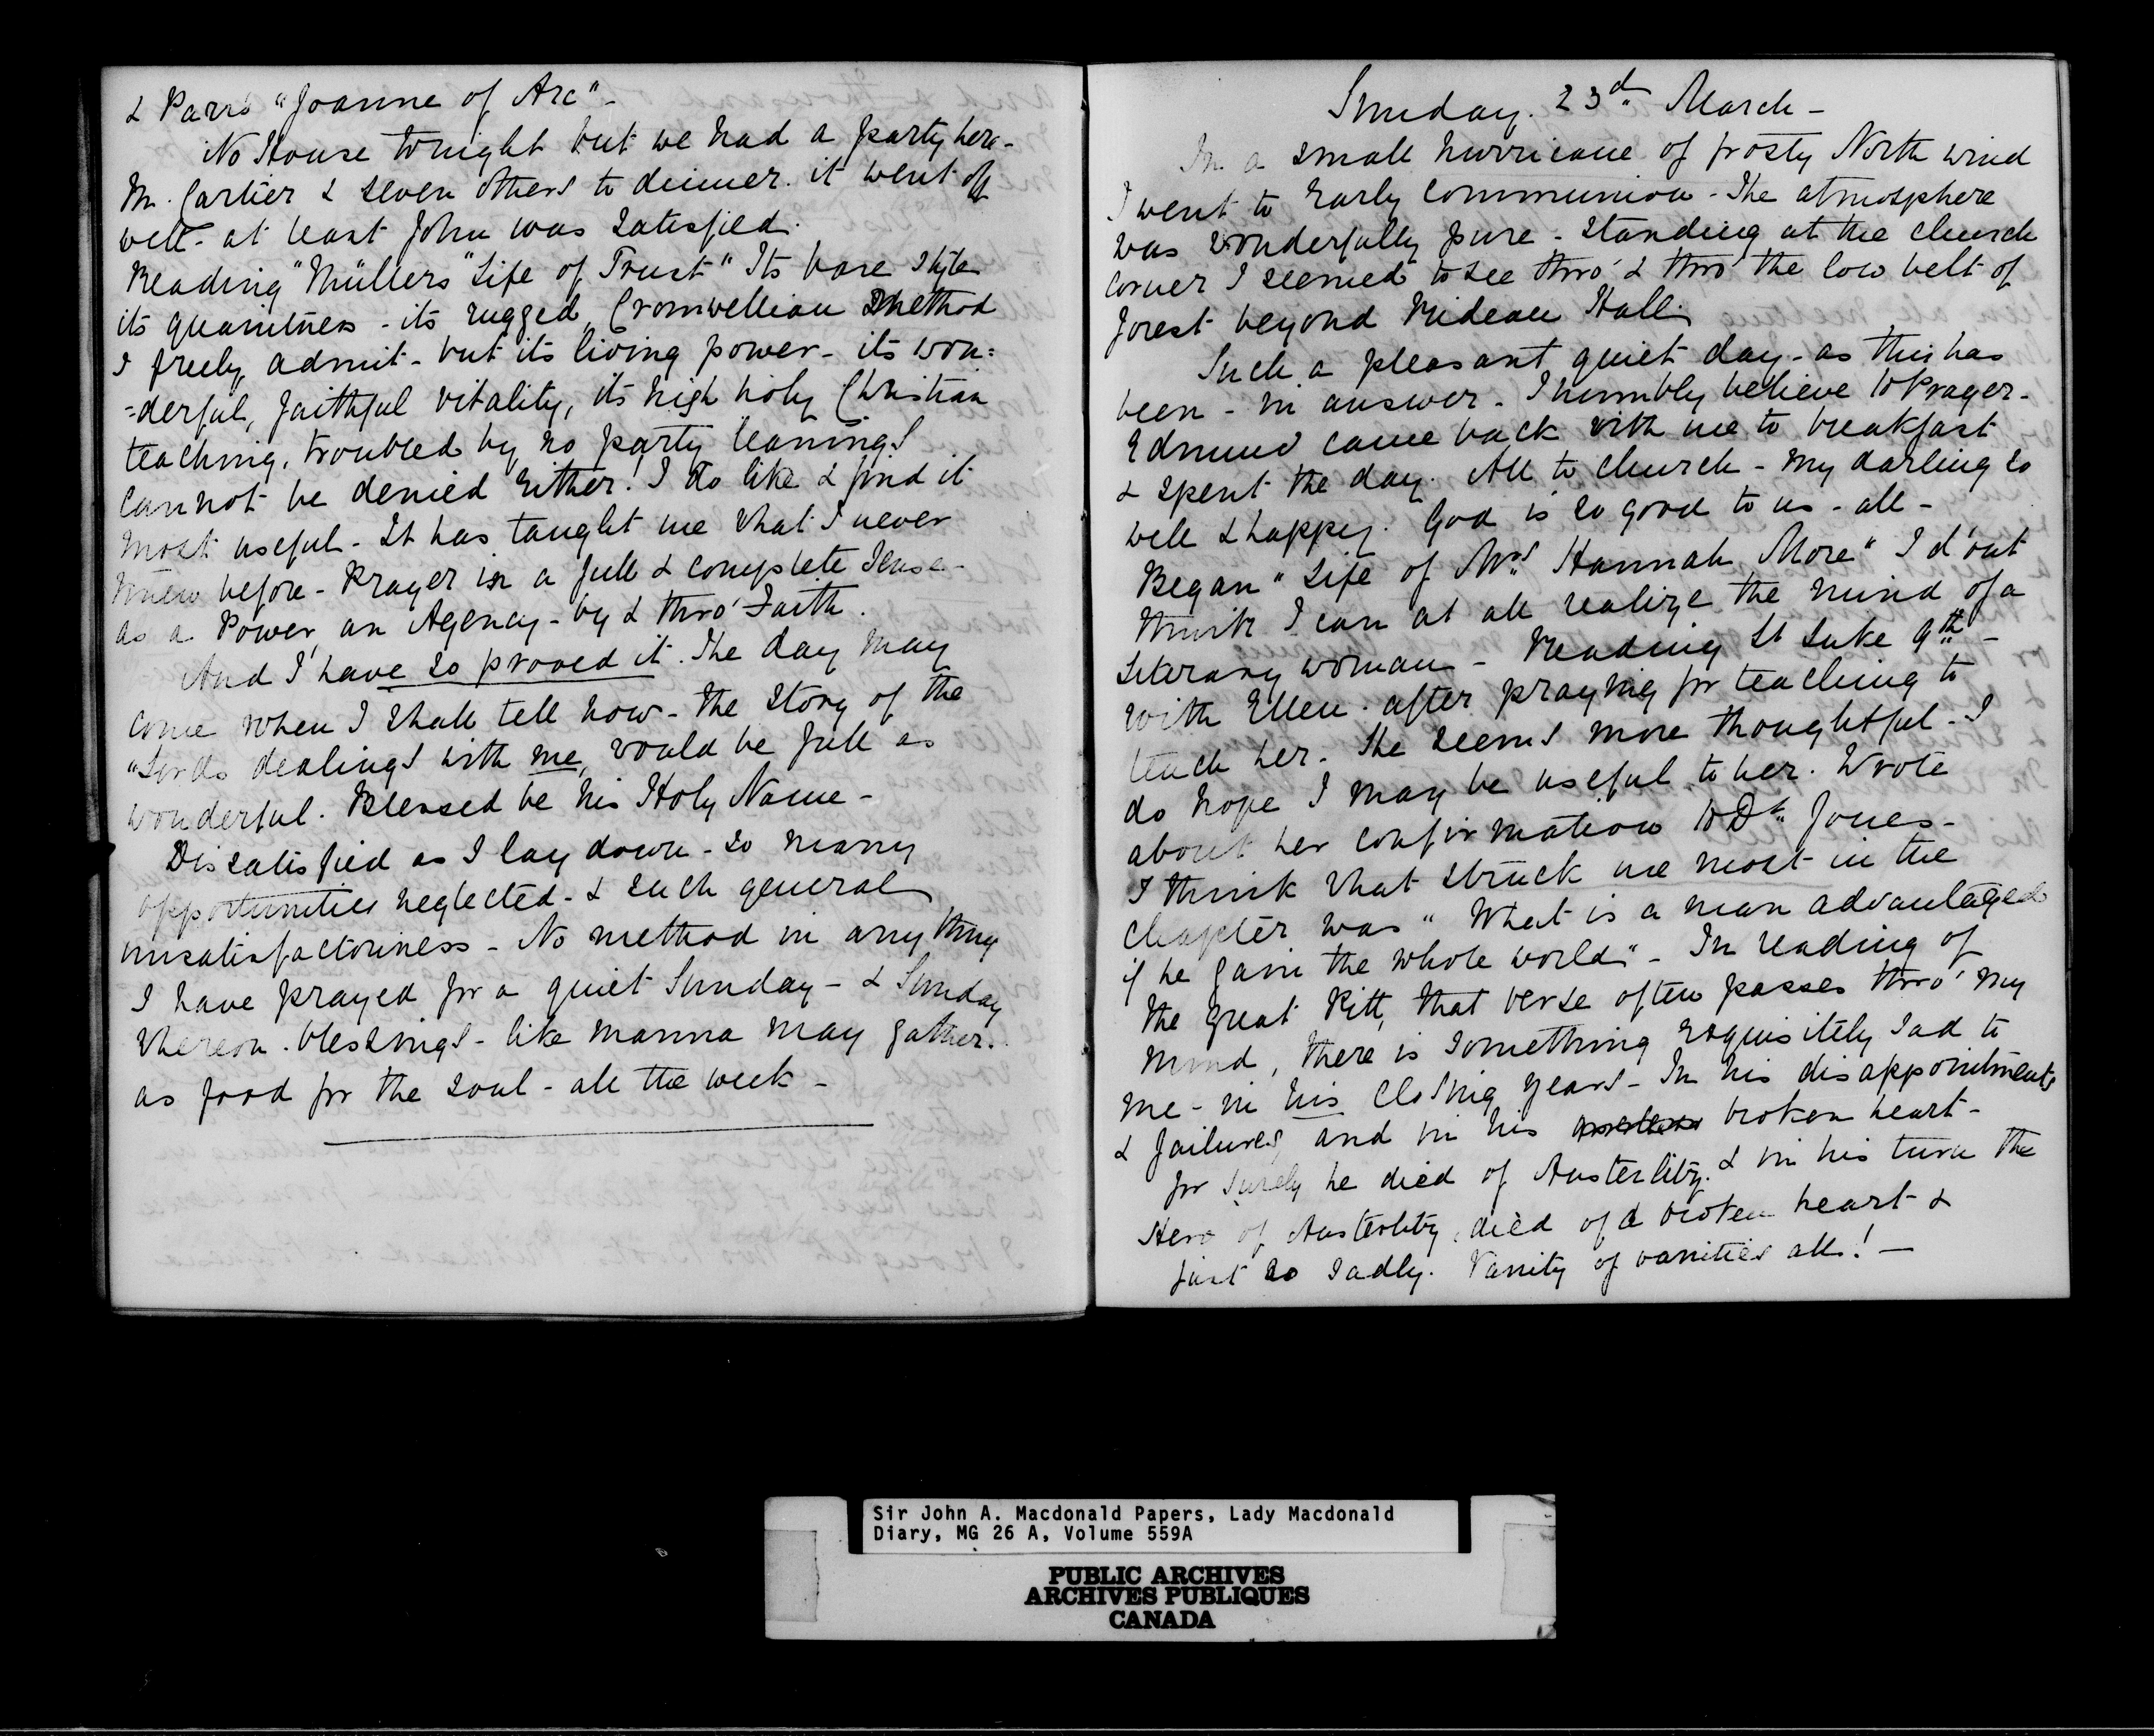 & Parrs "Joanne of Arc" -
No House tonight but we had a party here -
Mr. Cartier & seven others to dinner. it went off
well - at least John was satisfied.
Reading "Müllers "Life of Trust" Its bare style
its quaintness - its rugged, Cromwellian method
I freely admit - but its living power - its won=
=derful, faithful vitality, its high holy Christian
teaching, troubled by no party leanings
cannot be denied either! I do like & find it
most useful - It has taught me what I never
knew before - Prayer in a full & complete sense -
as a Power, an Agency - by & thro' Faith.
And I have so proved it. The day may
come when I shall tell how - the story of the
"Lords dealings with me, would be full as
wonderful. Blessed be his Holy Name -
Dissatisfied as I lay down - so many
opportunities neglected - & such general
unsatisfactoriness - No method in any thing
I have prayed for a quiet Sunday - & Sunday
whereon - blessings - like manna may gather.
as food for the soul - all the week -
Sunday. 23d. March -
In a small hurricane of frosty North wind
I went to early communion - The atmosphere
was wonderfully pure - standing at the church
corner I seemed to see thro' & thro' the low belt of
forest beyond Rideau Hall.
Such a pleasant quiet day - as this has
been - in answer - I humbly believe to Prayer -
Edmund came back with me to breakfast
& spent the day. All to church - my darling so
well & happy. God is so good to us - all -
Began "Life of Mrs. Hannah More" I d'ont
think I can at all realize the mind of a
literary woman - Reading St Luke 9th -
with Ellen - after praying for teaching to
teach her. She seems more thoughtful - I
do hope I may be useful to her. Wrote
about her confirmation to Dr. Jones -
I think what struck me most in the
chapter was "What is a man advantaged
if he gain the whole world" - In reading of
the great Pitt, that verse often passes thro' my
mind, there is something exquisitely sad to
me - in his closing years - In his disappointments
& failures, and in his broken heart -
for surely he died of Austerlitz. & in his turn the
Hero of Austerlitz, died of a broken heart &
just so sadly. Vanity of vanities all! -
Sir John A. Macdonald Papers, Lady Macdonald
Diary, MG 26 A, Volume 559A
PUBLIC ARCHIVES
ARCHIVES PUBLIQUES
CANADA